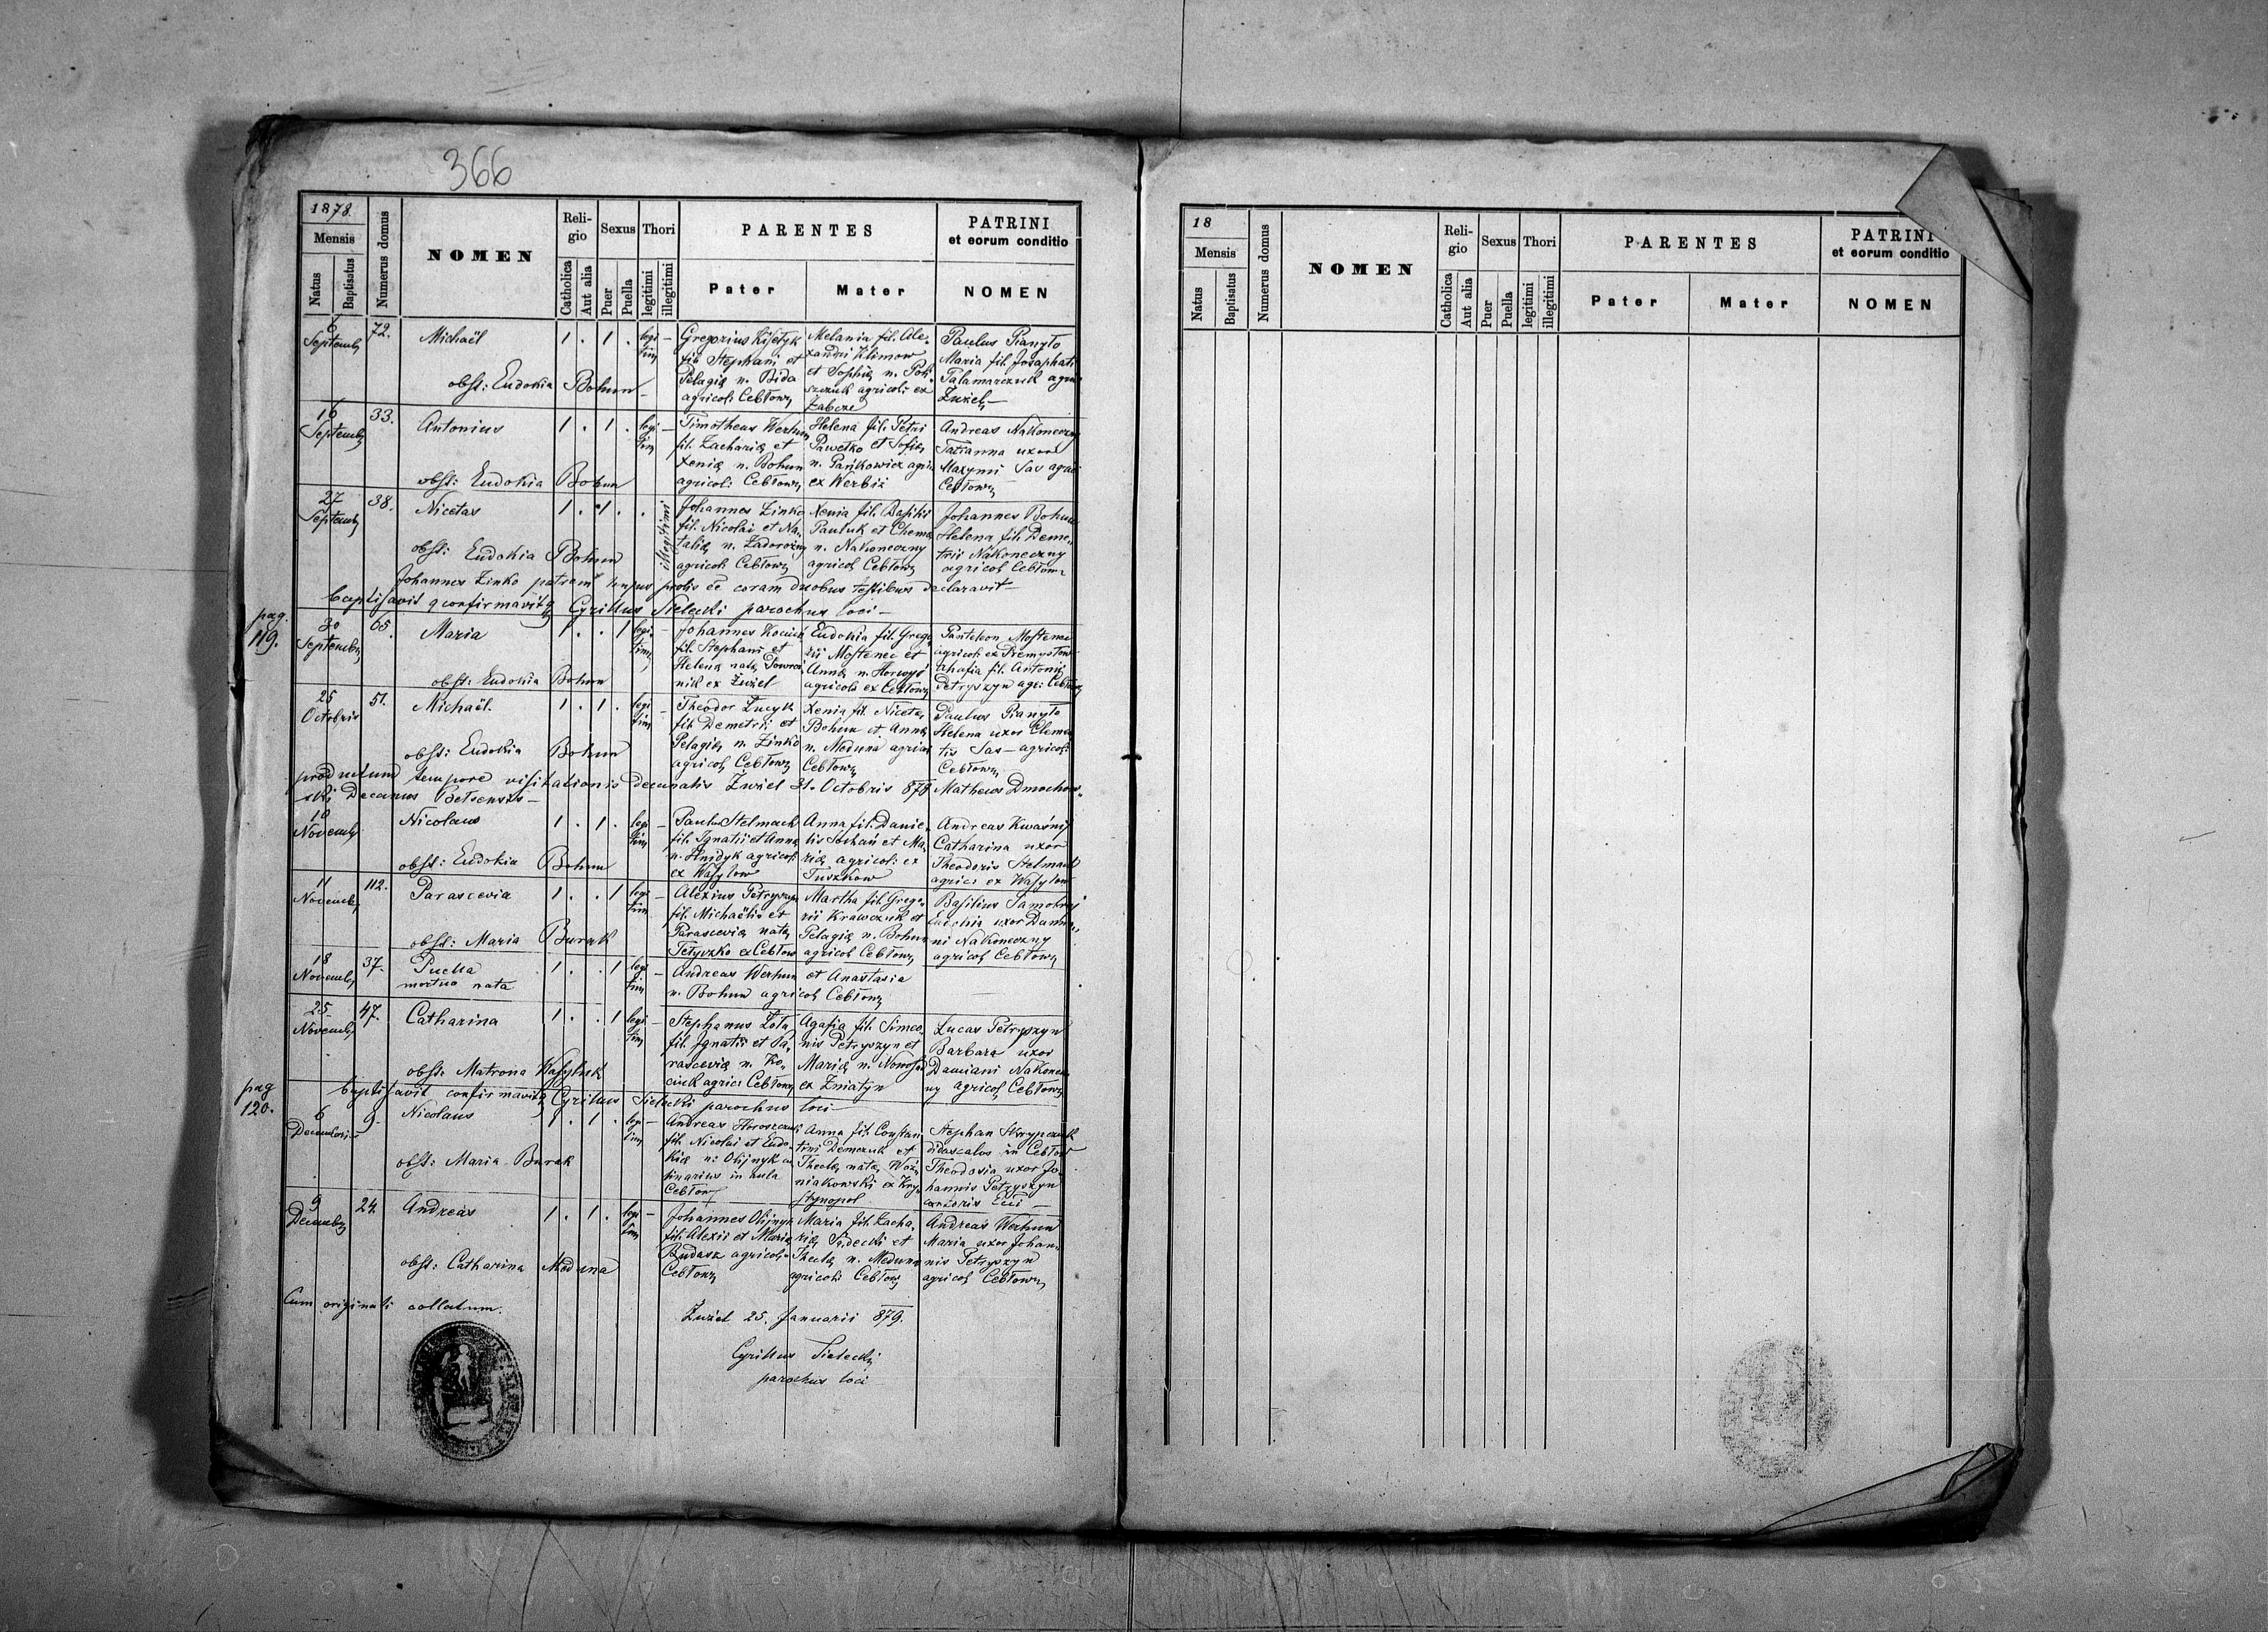 366
1878.
Mensis
Natus
Baptisatus
Numerus domus
NOMEN
Reli-
gio
Catholica
Aut alia
Sexus
Puer
Puella
Thori
legitimi
illegitimi
PARENTES
Pater
Mater
PATRINI
et eorum conditio
NOMEN
6
Septemb
72.
Michaël
obst: Eudokia Bohun
1 . 1 .
legi
tim
Gregorius
fil. Stephani et
Pelagiæ n. Bida
agricol: Cebłow
Melania fil. Ale-
xandri Klimow
et Sophiæ n. Poli
szczuk agricoli ex
Żabcze
Paulus Pianyło
Maria fil. Josaphati
Palamarczuk agri
Żużel
16
Septemb
33.
Antonius
obst: Eudokia Bohun
1 . 1 .
legi
tim
Timotheus Werhun
fil. Zachariæ et
Xeniæ n. Bohun
agricol: Cebłow
Helena fil. Petri
Pawełko et Sofiæ
n. Pańkowicz agri
ex Werbiż
Andreas Nakoneczny
Tatianna uxor
Maxymi Sas agri
Cebłow
27
Septemb
38.
Nicetas
obst: Eudokia Bohun
1 . 1 . .
illegitimi
Johannes Zinko
fil. Nicolai et Na-
taliæ n. Zadorożny
agricol Cebłow
Xenia fil. Basilii
Pauluk et
n. Nakoneczny
agricol Cebłow
Johannes Bohun
Helena fil. Deme-
trii Nakoneczny
agricol Cebłow
Johannes Zinko patrem hujus prolis eē coram duobus testibus declaravit
baptisavit q confirmavitq Cyrillus Sielecki parochus loci
pag.
119.
30
Septemb
65.
Maria
obst: Eudokia Bohun
1 . . 1
legi
tim
Johannes
fil. Stephani et
Helenæ natæ
nik ex Żużel
Eudokia fil. Grego
rii Mostenec et
Annæ n.
agricolæ ex Cebłow
Panteleon Mostenec
agricol: ex Przemysłow
Ahafia fil. Antonii
Petryszyn agr: Cebłow
25
Octobris
51.
Michaël.
obst: Eudokia Bohun
1 . 1 .
legi
tim
Theodor Łucyk
fil. Demetri: et
Pelagiæ n. Zinko
agricol Cebłow
Xenia fil. Nicetæ
Bohun et Annæ
n. Meduna agricol
Cebłow
Paulus Pianyło
Helena uxor Clemen
tis Sas agricol:
Cebłow
productum tempore visitationis decanalis Żużel 31. Octobris 878 Matheus Dmochow-
ski Decanus Bełzensis
10
Novemb
Nicolaus
obst: Eudokia Bohun
1 . 1 .
legi
tim
Paulus Stelmach
fil. Ignatii et Annæ
n. Hnidyk agricol:
ex Wasylow
Anna fil. Danie-
lis Sochań et Ma-
riæ agricol: ex
Tuszkow
Andreas Kwaśnij
Catharina uxor
Theodoris Stelmach
agrici ex Wasylow
11
Novemb
112.
Parascevia
obst: Maria Burak
1 . . 1
legi
tim
Alexius Petryszyn
fil. Michaëlis et
Parasceviæ natæ
Tetyszko ex Cebłow
Martha fil. Grego-
rii Krawczuk et
Pelagiæ n. Bohun
agricol Cebłow
Basilius Samokrij
Eudokia uxor Damia-
ni Nakoneczny
agricol Cebłow
18
Novemb
37.
Puella
mortua nata
1 . . 1
legi
tim
Andreas Werhun et Anastasia
n. Bohun agricol Cebłow
25.
Novemb
47.
Catharina
obst: Matrona Wasyluk
1 . . 1
legi
tim
Stephanus Zola
fil. Ignatii et Pa-
rasceviæ n. Ko-
ciuk agrici Cebłow
Agafia fil. Simeo-
nis Petryszyn et
Mariæ n. Nowosad
ex Żniatyn
Lucas Petryszyn
Barbara uxor
Damiani Nakonecz
ny agricol Cebłow
baptisavit confirmavitq Cyrillus Sielecki parochus loci
pag
120.
6
Decembris
9.
Nicolaus
obst: Maria Burak
1 . 1 .
legi
tim
Andreas Horoszczuk
fil. Nicolai et Eudo-
kiæ n: Olijnyk cu
linarius in aula
Cebłow
Anna fil. Constan
tini Demczuk et
Theclæ natæ Woź-
niakowski ex Kry-
stynopol
Stephan Skrypczuk
didascalos in Cebłow
Theodosia uxor Jo
hannis Petryszyn
cantoris Eccl
9
Decemb
24.
Andreas
obst: Catharina Meduna
1 . 1 .
legi
tim
Johannes Olijnyk
fil. Alexii et Mariæ
Rudasz agricol:
Cebłow
Maria fil. Zacha-
riæ Sidecki et
Theclæ n. Meduna
agricoli Cebłow
Andreas Werhun
Maria uxor Johan-
nis Petryszyn
agricol Cebłow
Cum originali collatum.
Żużel 25. Januarii 879.
Cyrillus Sielecki
parochus loci
18
Mensis
Natus
Baptisatus
Numerus domus
NOMEN
Reli-
gio
Catholica
Aut alia
Sexus
Puer
Puella
Thori
legitimi
illegitimi
PARENTES
Pater
Mater
PATRINI
et eorum conditio
NOMEN